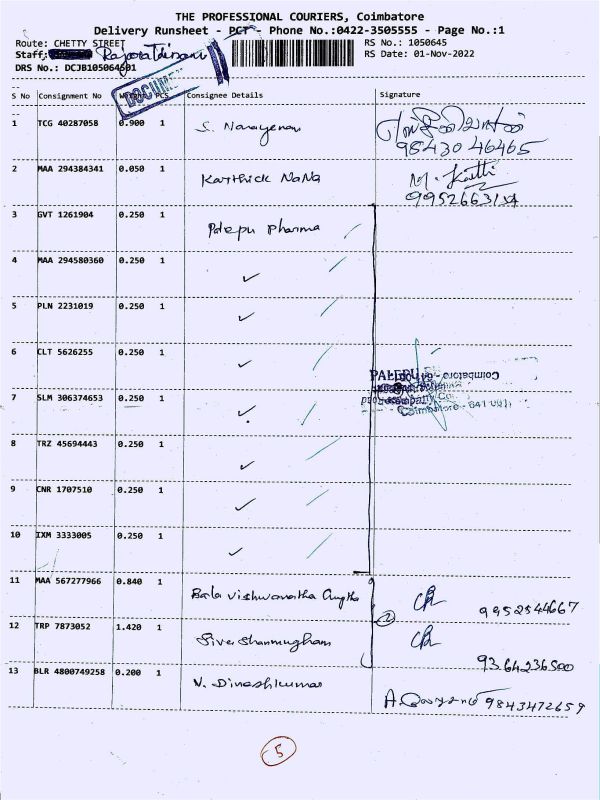 THE PROFESSIONAL COURIERS, Coimbatore
Delivery Runsheet - PCT - Phone No.:0422-3505555 - Page No.:1
Route: CHETTY STREET
RS No.: 1050645
Staff:
RS Date: 01-Nov-2022
DRS No.: DCJB105064501
DOCUME
S No Consignment No Weight PCS Consignee Details Signature
1 TCG 40287058 0.900 1 S. Narayenan
98430 46465
2 MAA 294384341 0.050 1 Karthick NaNa M. Karthi
3 GVT 1261904 0.250 1 Palepu Pharma
4 MAA 294580360 0.250 1 ✓
5 PLN 2231019 0.250 1 ✓
6 CLT 5626255 0.250 1 ✓
PALEPU Coimbatore
7 SLM 306374653 0.250 1 ✓
Coimbatore - 641 001
8 TRZ 45694443 0.250 1 ✓
9 CNR 1707510 0.250 1 ✓
10 IXM 3333005 0.250 1 ✓
11 MAA 567277966 0.840 1 Bala Vishwanatha Guptha 9952544667
12 TRP 7873052 1.420 1 Siva Shanmugham 9364236500
2
13 BLR 4800749258 0.200 1 V. Dineshkumar A. 9843472659
5